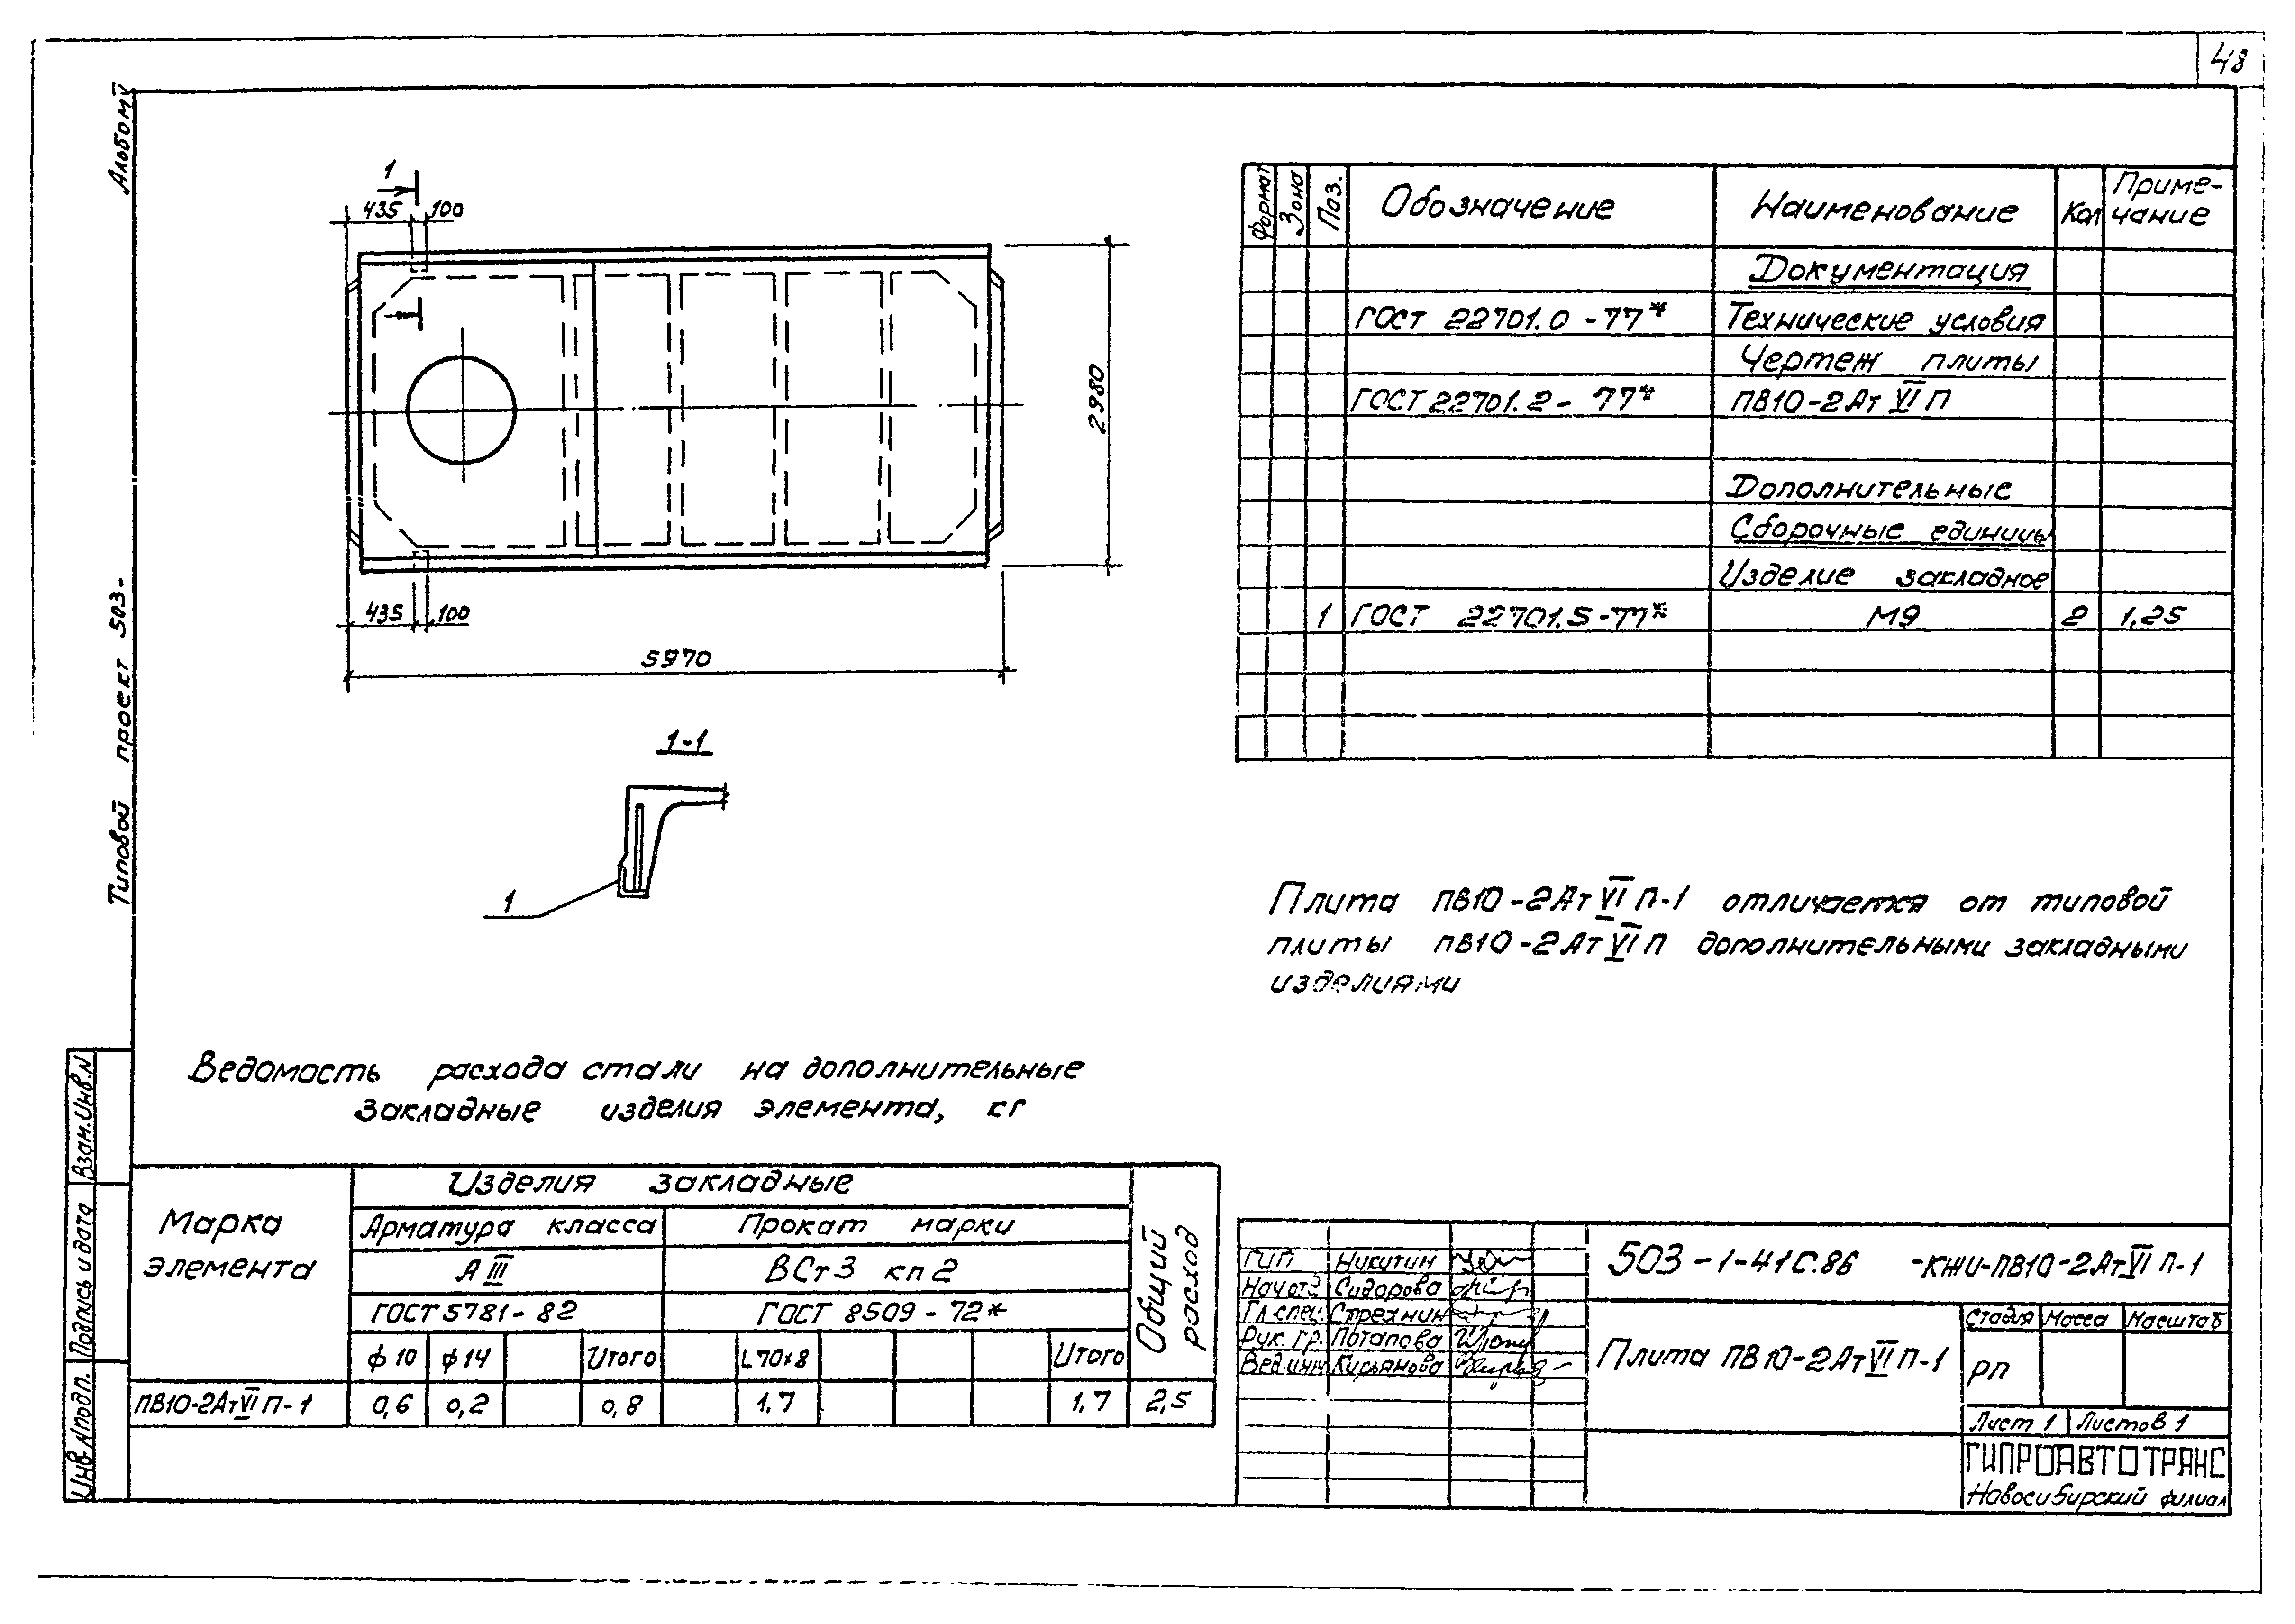 48
Альбом V
Типовой проект 503-
1
435 100
2980
435 100
5970
1-1
1
Формат Зона Поз. Обозначение Наименование Кол Приме-
чание
Документация
ГОСТ 22701.0-77* Технические условия
Чертеж плиты
ГОСТ 22701.2-77* ПВ10-2АтVIП
Дополнительные
Сборочные единицы
Изделие закладное
1 ГОСТ 22701.5-77* М9 2 1,25
Плита ПВ10-2АтVIП-1 отличается от типовой
плиты ПВ10-2АтVIП дополнительными закладными
изделиями
Ведомость расхода стали на дополнительные
закладные изделия элемента, кг
Марка
элемента
Изделия закладные
Общий
расход
Арматура класса Прокат марки
АIII ВСт3 кп2
ГОСТ 5781-82 ГОСТ 8509-72*
ф10 ф14 Итого L70x8 Итого
ПВ10-2АтVIП-1 0,6 0,2 0,8 1.7 1,7 2,5
Инв. N подл. Подпись и дата Взам.инв.N
ГИП Никитин
Нач отд Сидорова
Гл спец. Стрехнин
Рук. гр. Потапова
Вед.инж Кирьянова
503-1-41С.86 -КЖИ-ПВ10-2АтVIП-1
Плита ПВ10-2АтVIП-1
Стадия Масса Масштаб
РП
Лист 1 Листов 1
ГИПРОАВТОТРАНС
Новосибирский филиал